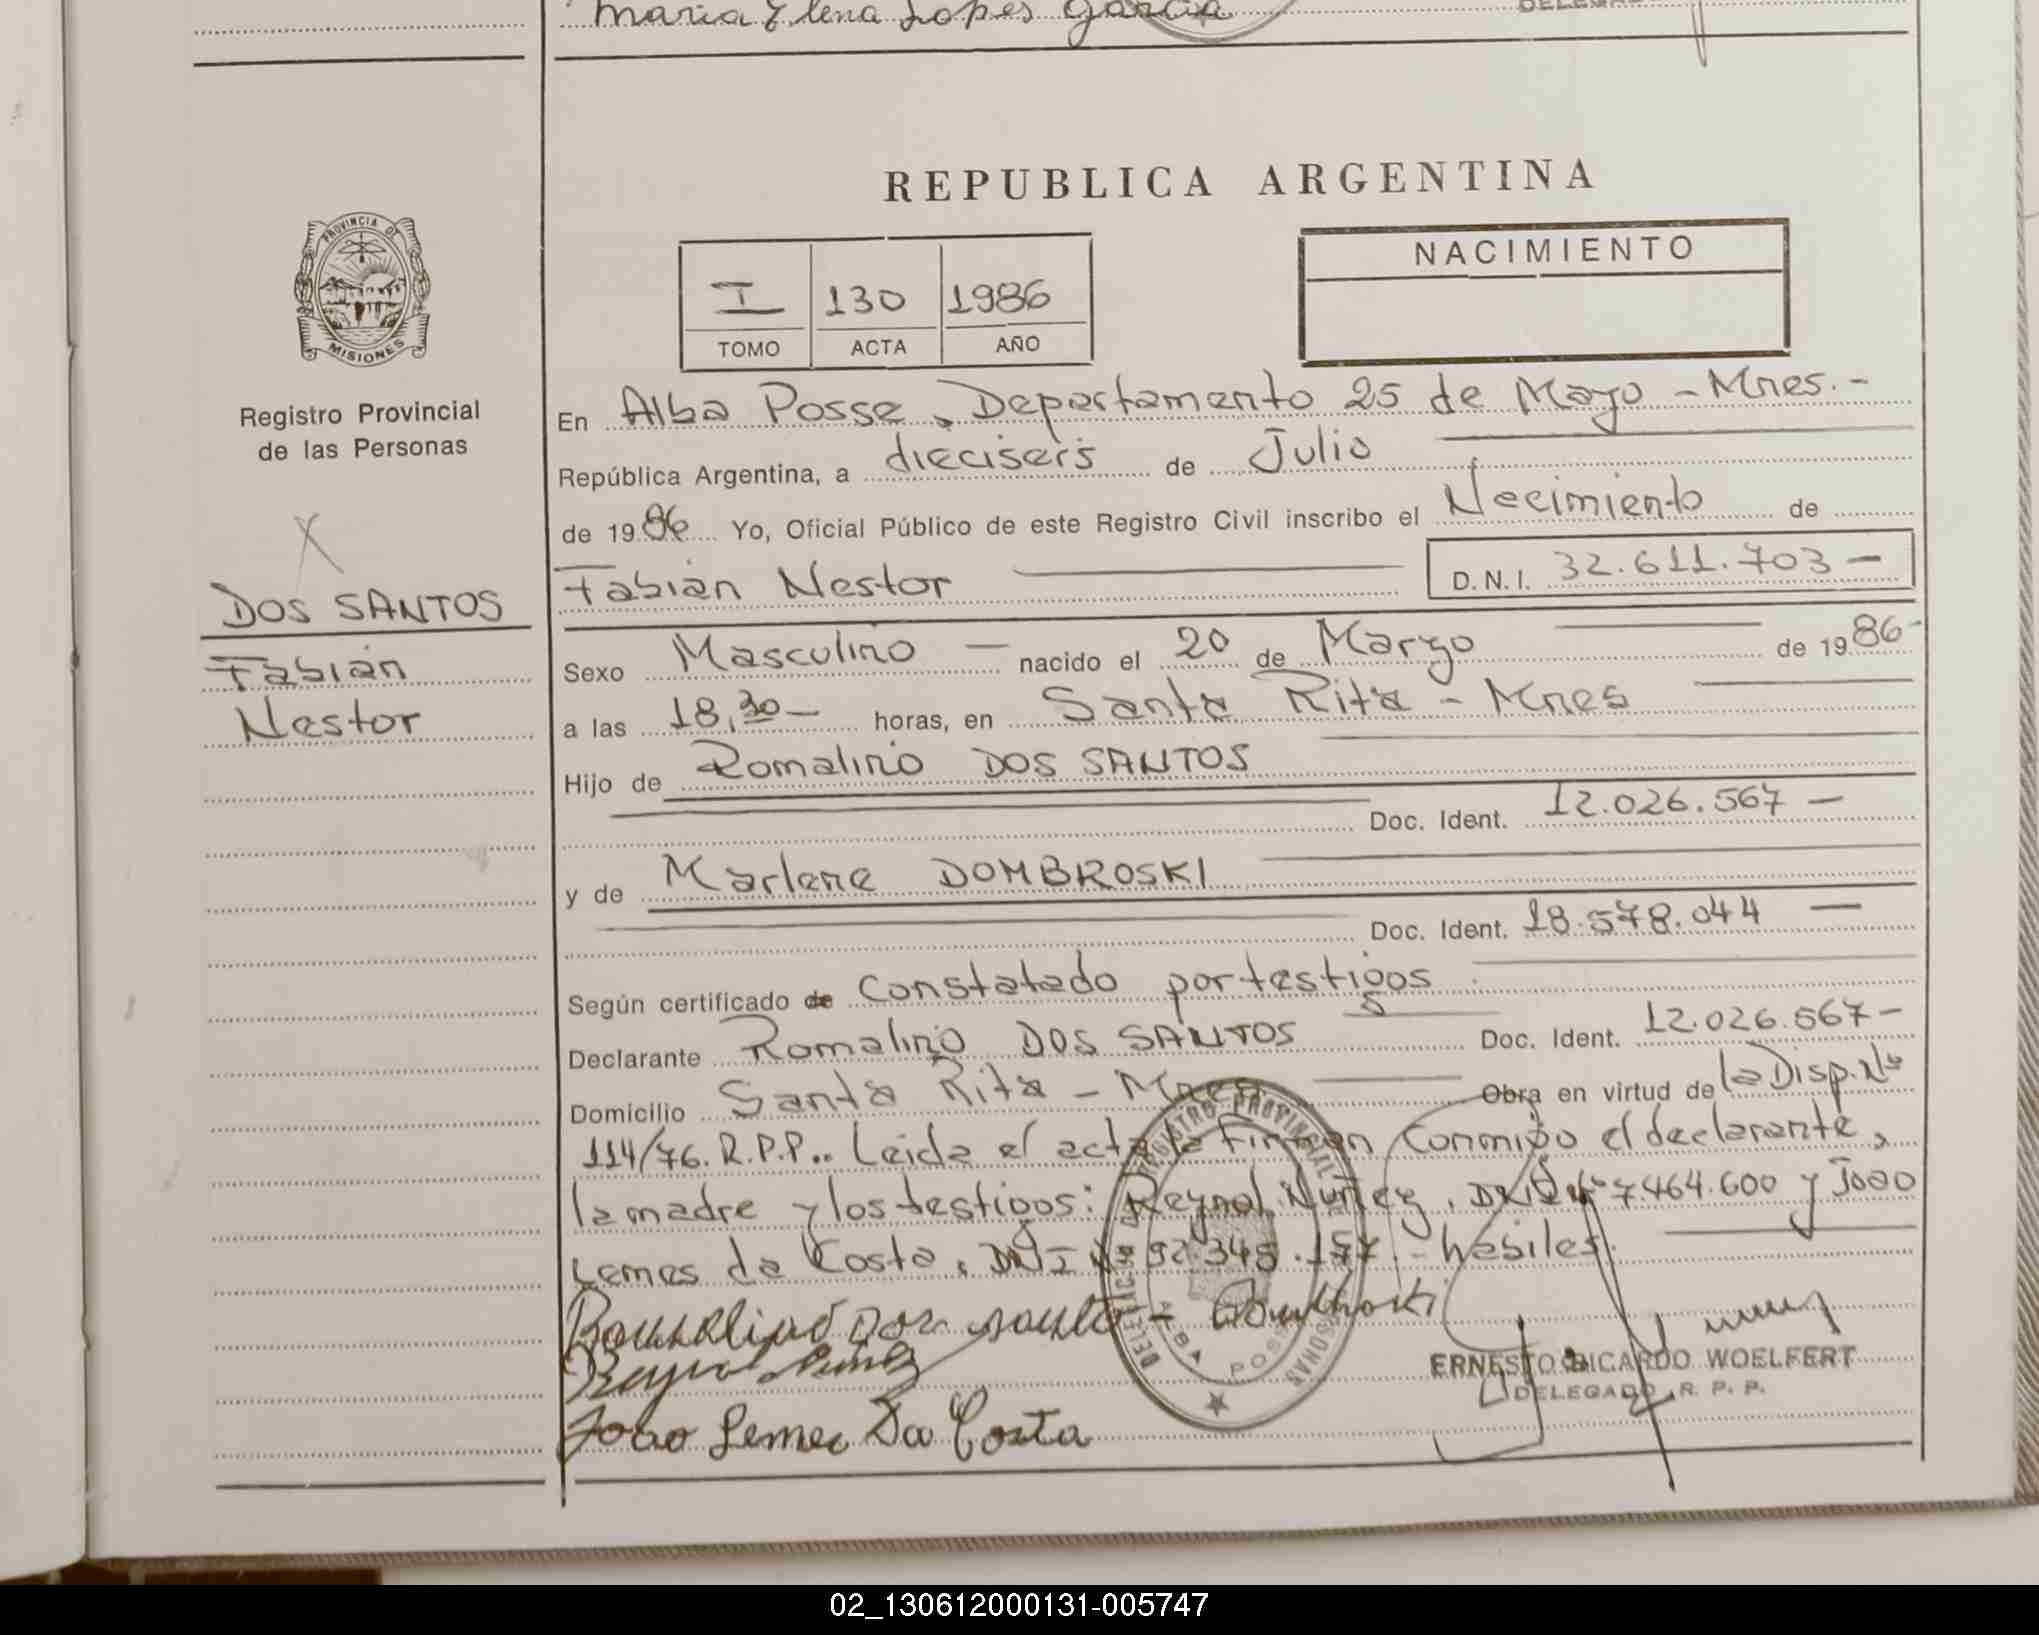 Maria Elena Lopes Garcia
REPUBLICA ARGENTINA
PROVINCIA DE
MISIONES
Registro Provincial
de las Personas
I 130 1986
TOMO ACTA AÑO
NACIMIENTO
En Alba Posse, Departamento 25 de Mayo - Mnes.-
República Argentina, a dieciseis de Julio
de 1986 Yo, Oficial Público de este Registro Civil inscribo el Nacimiento de
Fabian Nestor D.N.I. 32.611.703 -
X
DOS SANTOS
Fabian
Nestor
Sexo Masculino - nacido el 20 de Marzo de 1986-
a las 18,30 - horas, en Santa Rita - Mnes
Hijo de Romalino DOS SANTOS
Doc. Ident. 12.026.567 -
y de Marlene DOMBROSKI
Doc. Ident. 18.578.044 -
Según certificado de Constatado por testigos
Declarante Romalino DOS SANTOS Doc. Ident. 12.026.567-
Domicilio Santa Rita - Mnes Obra en virtud de la Disp. Nº
114/76. R.P.P.. Leida el acta la firman conmigo el declarante,
la madre y los testigos: Reynol Nuñez, DNI Nº 7.464.600 y Joao
Lemes da Costa, DNI Nº 92.348.157.- habiles.
DELEGACION REGISTRO PROVINCIAL DE LAS PERSONAS
ALBA POSSE
ERNESTO RICARDO WOELFERT
DELEGADO R. P. P.
Joao Lemes Da Costa
02_130612000131-005747